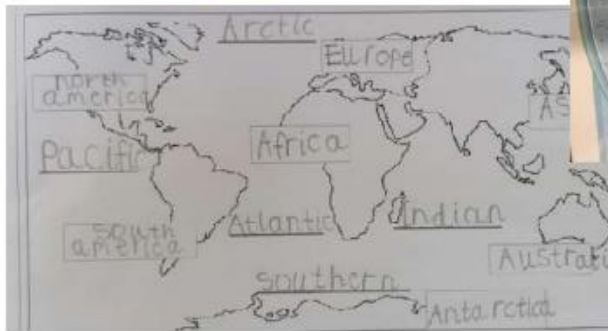 Arctic
Europe
north
america
AS
Africa
Pacific
Atlantic
Indian
south
america
Australi
Southern
Antarctica